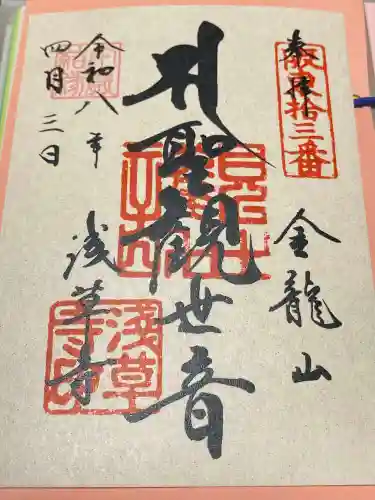 奉拝
坂東拾三番
金龍山
聖観世音
令和八年
四月三日
浅草寺
淺草
寺印